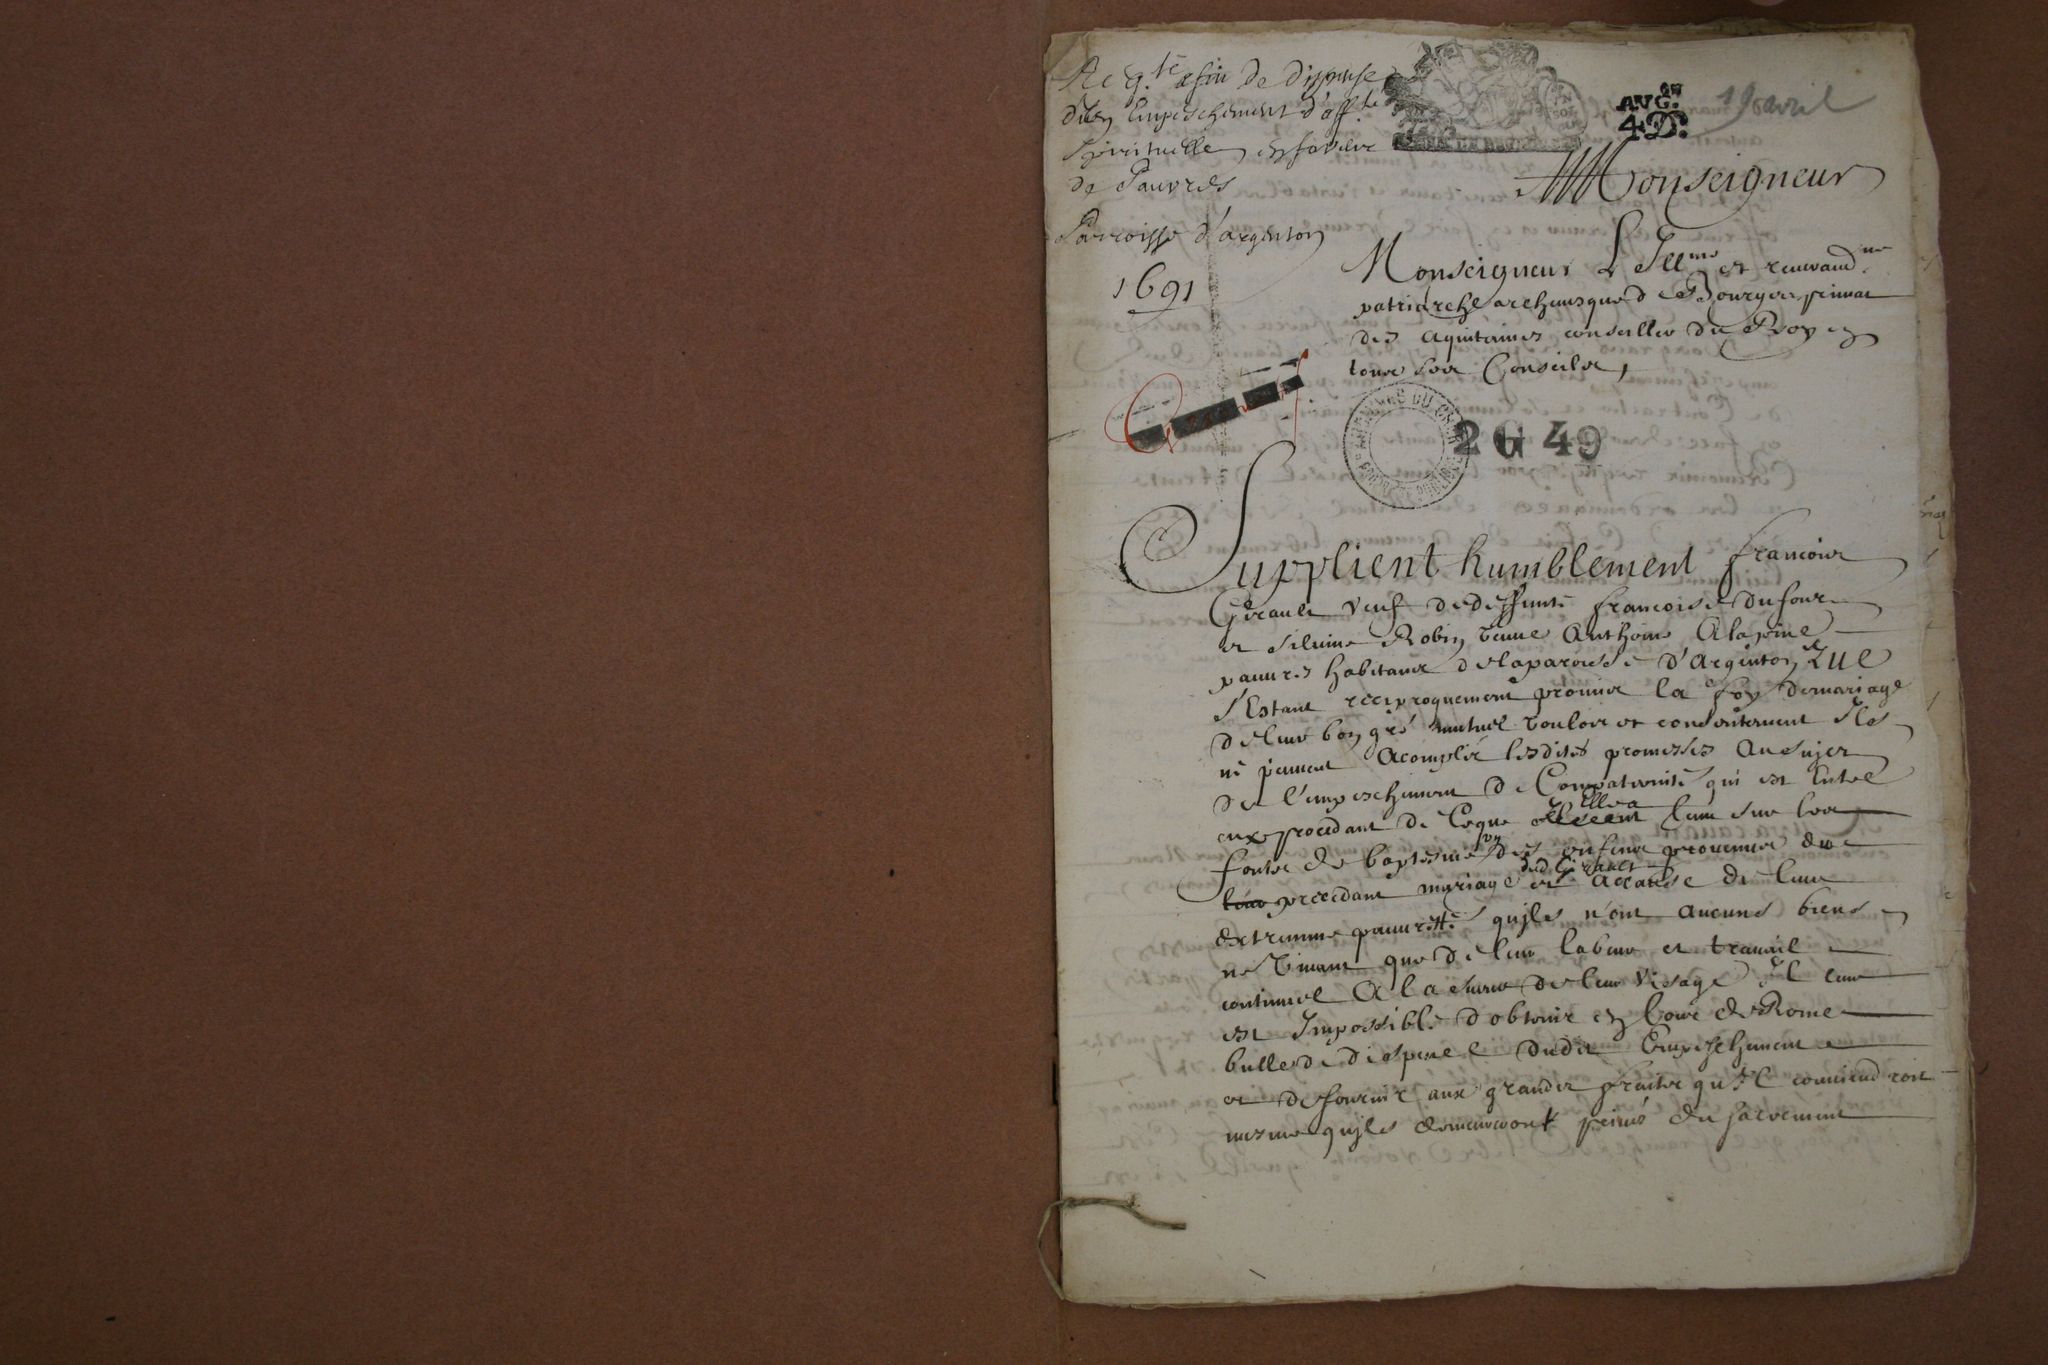 Reqte afin de dispense
d'un Empeschement d'affté
spirituelle en faveur
de Pauvres
Parroisse d'argenton
1691
AVG.on
4D.
19 avril
Monseigneur
Monseigneur L'Illme et reuerandme
patriarche archeuesque de Bourges primat
des aquitaines conseiller du Roy en
tous ses Conseils,
ARCHIVES DU CHER
2 G 49
Supplient humblement francois
Girault veuf de deffunte francoise dufour
et siluine Robin veuue Anthoine Alapine
pauures habitans de la paroisse d'Argenton que
s'Estant reciproquement promis la foy de mariage
de leur bon gré mutuel vouloir et consentement Ils
ne peuuent acomplir lesdites promesses au sujet
de l'empeschement de Compaternité qui est Entre
eux procedant de ce que Elle a tenu sur les
fonts de baptesme un des enfens prouenus du
precedant mariage dud Girault et acause de leur
extremme pauureté qujls n'ont aucuns biens
ne viuant que de leur labeur et trauail
continuel A la sueur de leur visage Il leur
est Impossible d'obtenir en Cour de Rome
bulle de dispense dudit Empeschement
et de fournir aux grandes fraits qu'Il conuiendroit
mesme qujls demeureront priués du sacrement